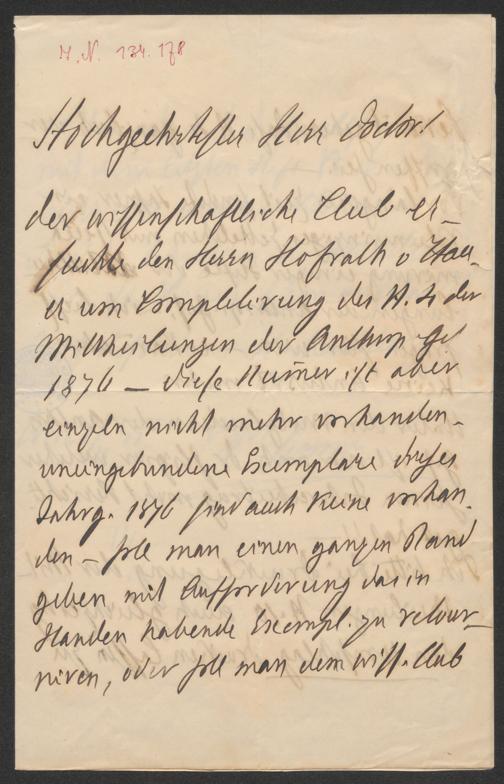 I.N. 134.178
Hochgeehrtester Herr Doctor!
der wissenschaftliche Club er-
suchte den Herrn Hofrath v Hau-
er um Completirung des H. 4 der
Mittheilungen der Anthrop Ges
1876 – diese Numer ist aber
einzeln nicht mehr vorhanden-
uneingebundene Exemplare dieses
Jahrg. 1876 sind auch keine vorhan-
den – soll man einen ganzen Band
geben mit Aufforderung das in
Handen habende Exempl. zu retour-
niren, oder soll man dem wiss. Club